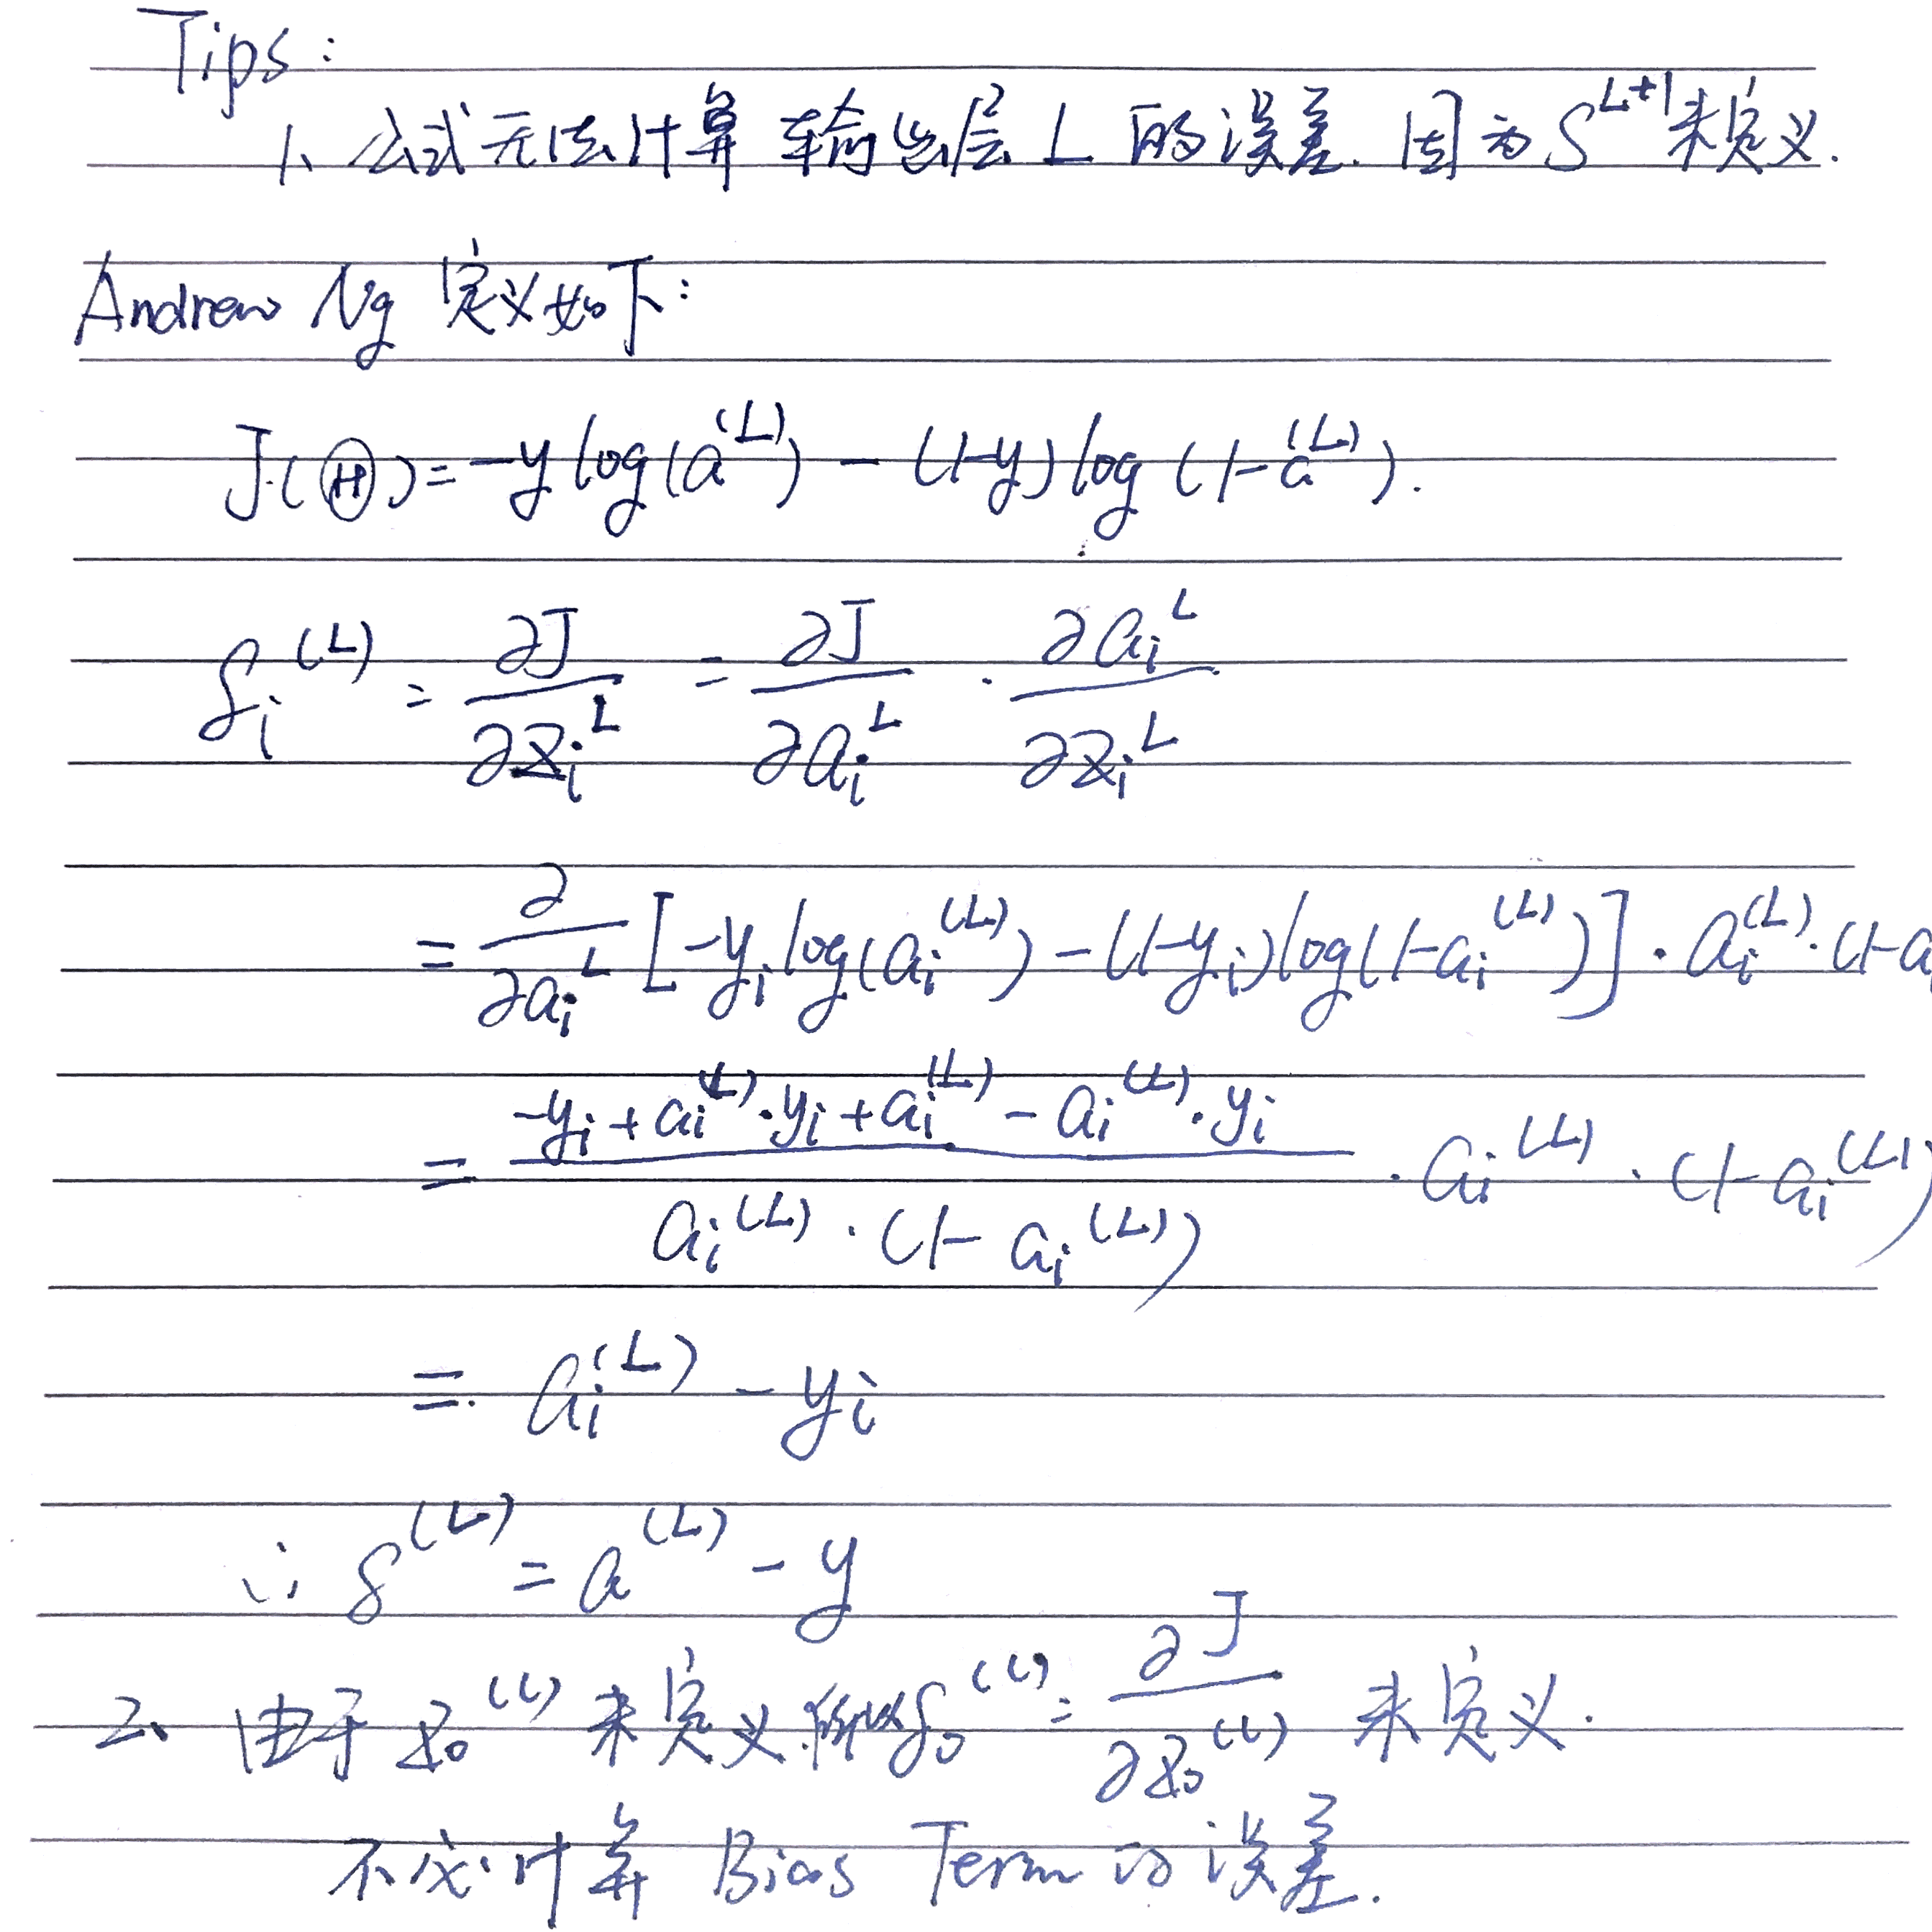 Tips:
1、公式无法计算 输出层 L 的误差. 因为 S^{L+1} 未定义.
Andrew Ng 定义如下:
J(Θ) = -y log(a^{(L)}) - (1-y) log(1-a^{(L)}).
δ_i^{(L)} = ∂J/∂z_i^L = ∂J/∂a_i^L · ∂a_i^L/∂z_i^L
= ∂/∂a_i^L [-y_i log(a_i^{(L)}) - (1-y_i) log(1-a_i^{(L)})] · a_i^{(L)} · (1-a
= (-y_i + a_i^{(L)}·y_i + a_i^{(L)} - a_i^{(L)}·y_i)/(a_i^{(L)}·(1-a_i^{(L)})) · a_i^{(L)} · (1-a_i^{(L)})
= a_i^{(L)} - y_i
∴ δ^{(L)} = a^{(L)} - y
2、由于 z_0^{(l)} 未定义 所以 δ_0^{(l)} = ∂J/∂z_0^{(l)} 未定义.
不必计算 Bias Term 的误差.